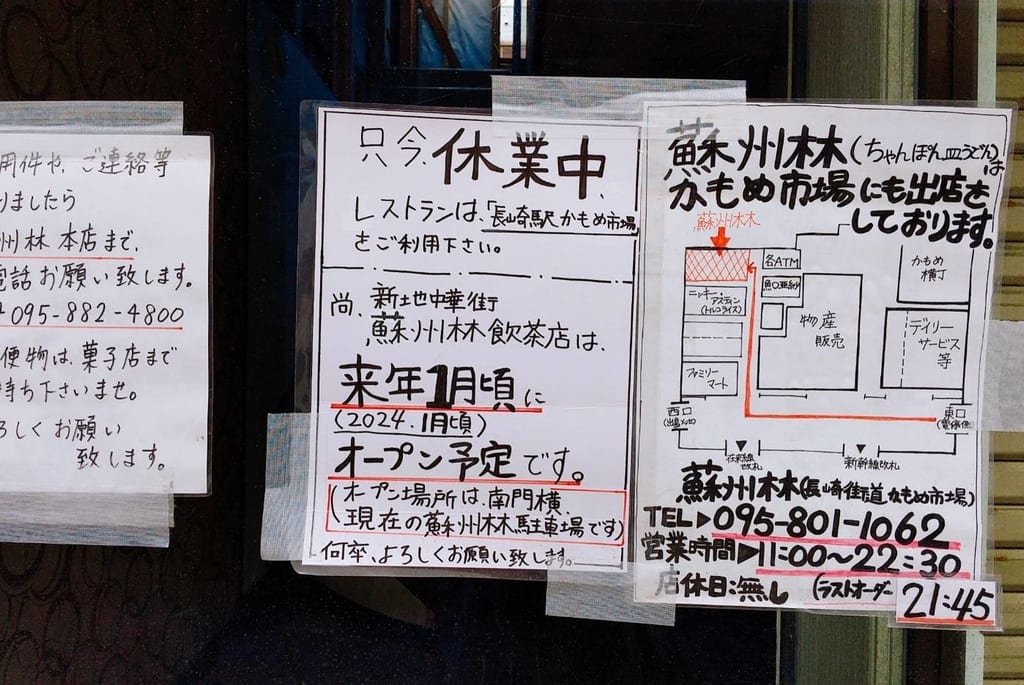 用件や、ご連絡等
りましたら
州林 本店まで、
電話お願い致します。
095-882-4800
便物は、菓子店まで
持ち下さいませ。
ろしくお願い
致します。
只今、休業中、
レストランは、「長崎駅かもめ市場」
をご利用下さい。
尚、新地中華街
蘇州林飲茶店は、
来年1月頃に
(2024.1月頃)
オープン予定です。
(オープン場所は、南門横、
現在の蘇州林駐車場です)
何卒、よろしくお願い致します。
蘇州林(ちゃんぽん皿うどん)は
かもめ市場にも出店を
しております。
蘇州林
各ATM
かもめ
横丁
ニッキー・
アスティン
(トルコライス)
物産
販売
デイリー
サービス
等
ファミリー
マート
西口
東口
(電停側)
在来線
改札
新幹線改札
蘇州林(長崎街道かもめ市場)
TEL▶095-801-1062
営業時間▶11:00〜22:30
店休日:無し (ラストオーダー
21:45